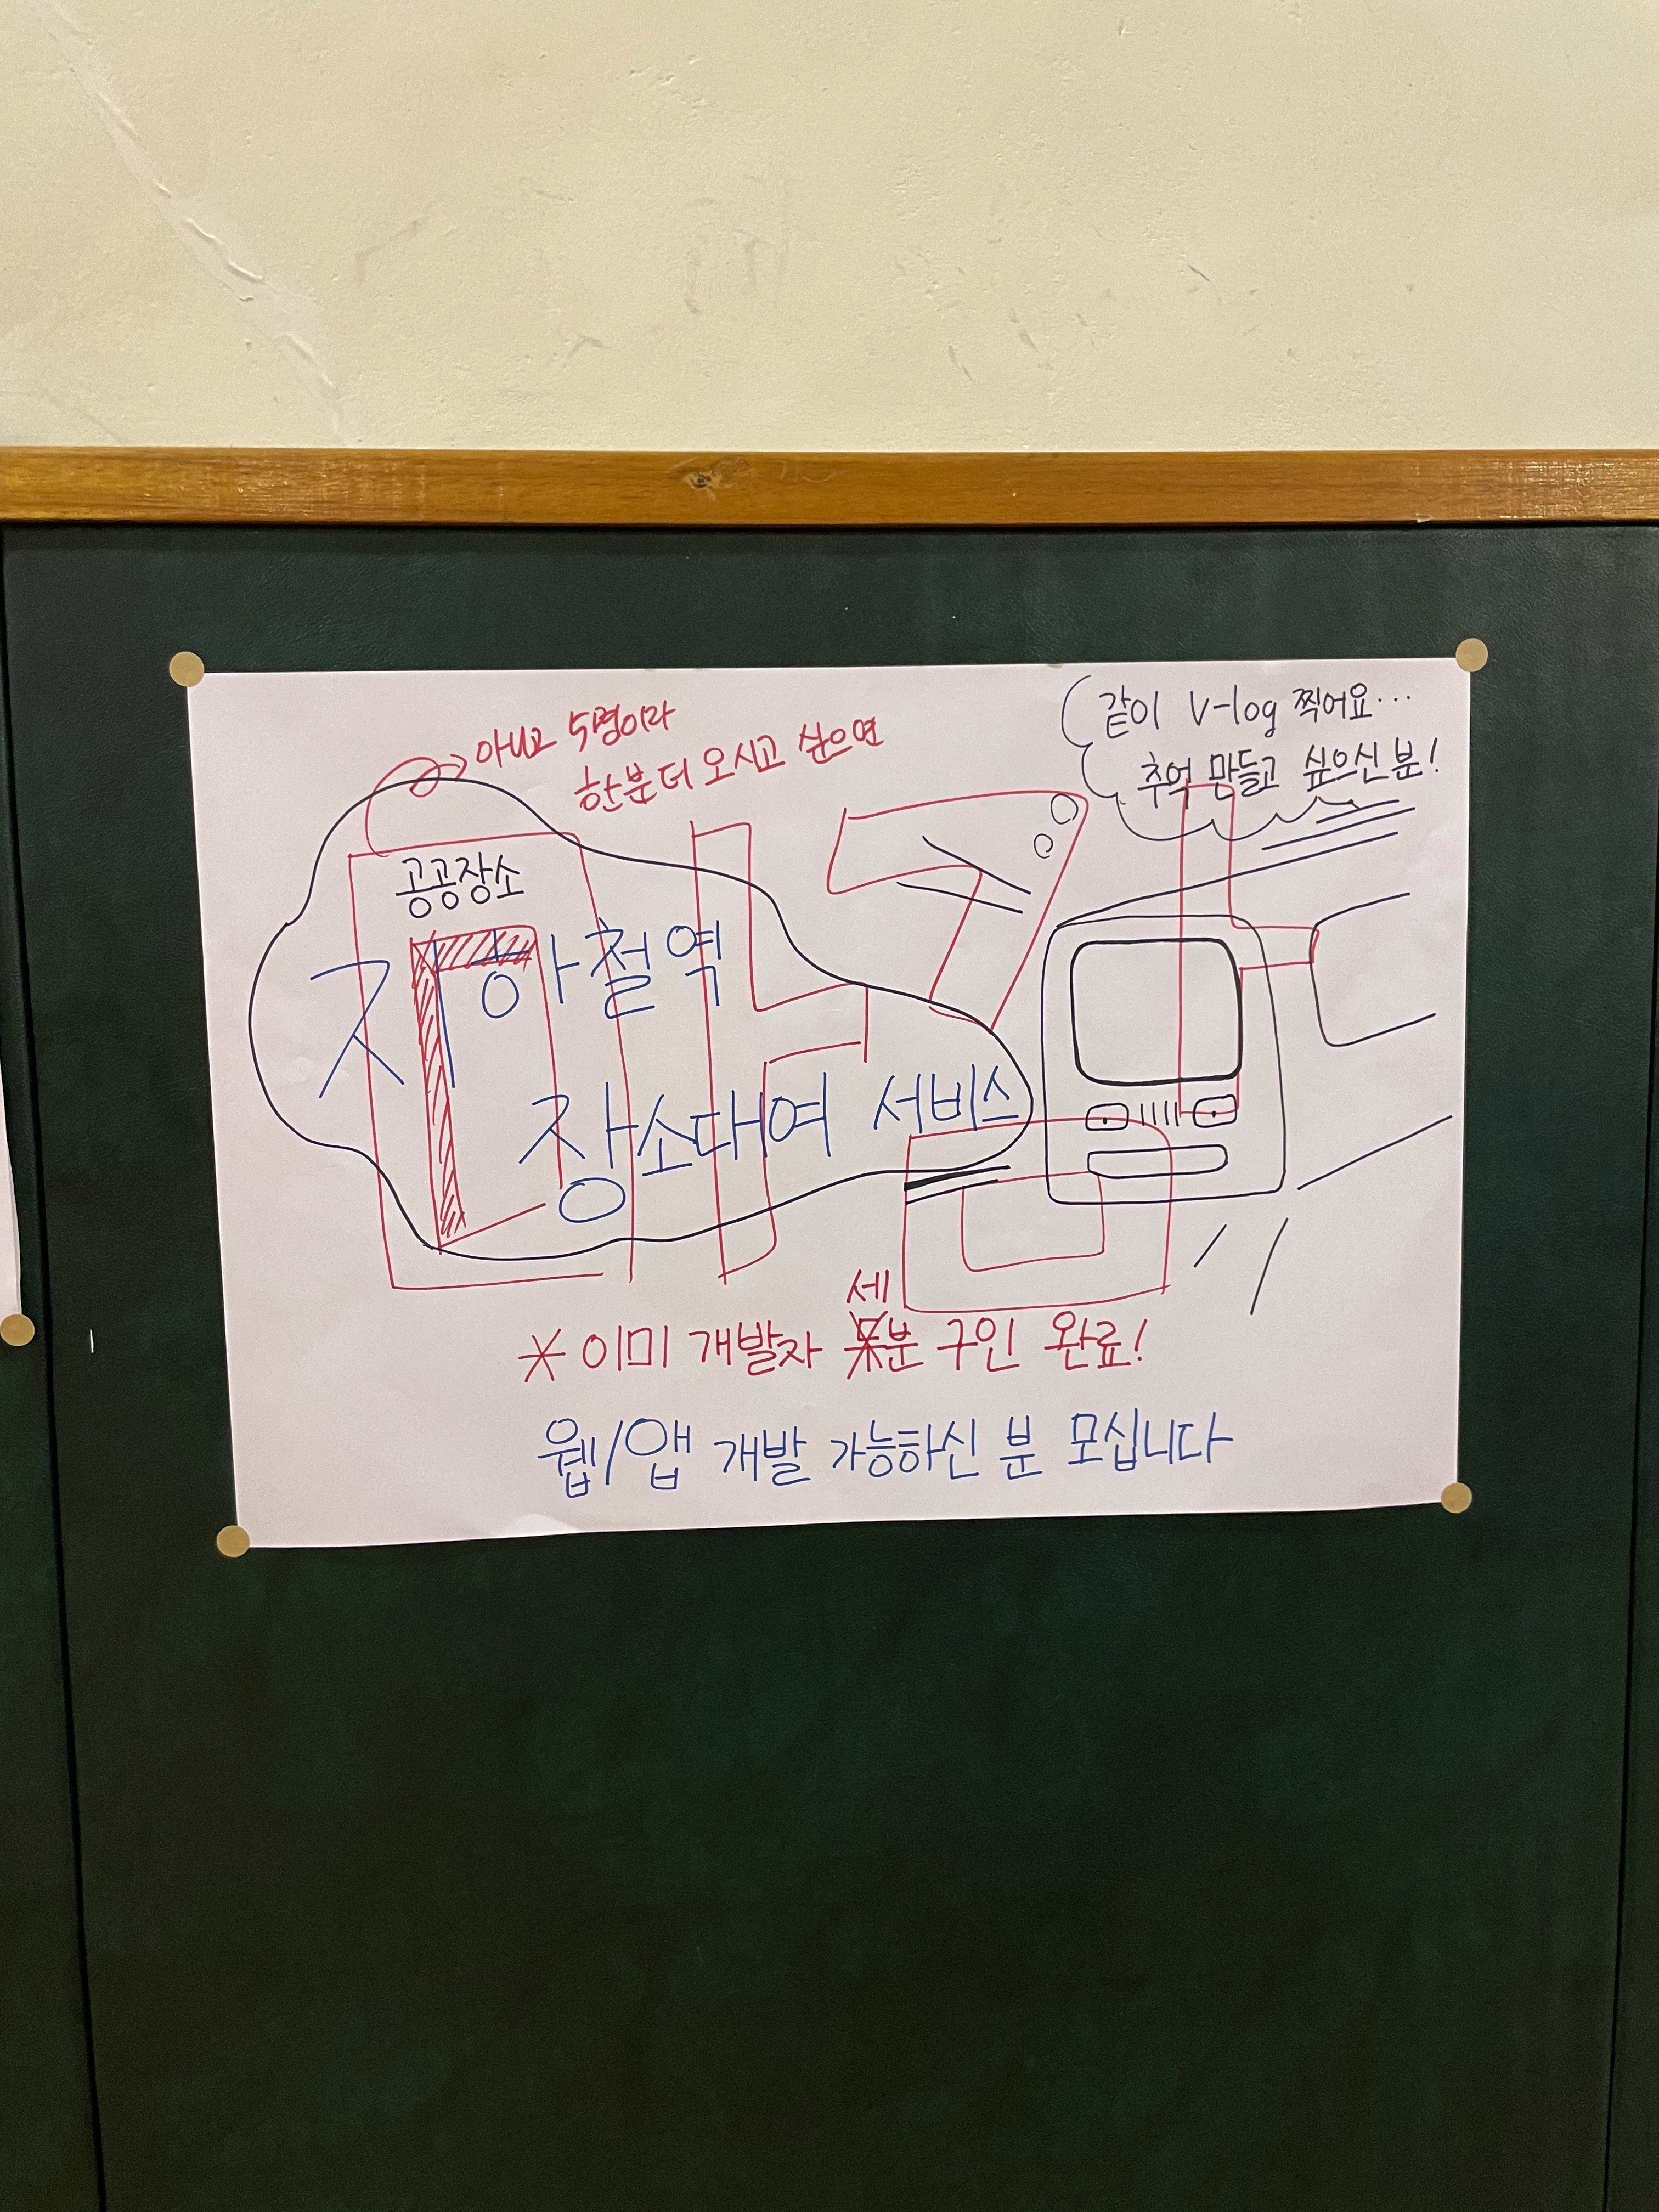 아니고 5명이라
한분 더 오시고 싶으면
같이 V-log 찍어요...
추억 만들고 싶으신 분!
마감
공공장소
지하철역
장소대여 서비스
세
* 이미 개발자 분 구인 완료!
웹/앱 개발 가능하신 분 모십니다